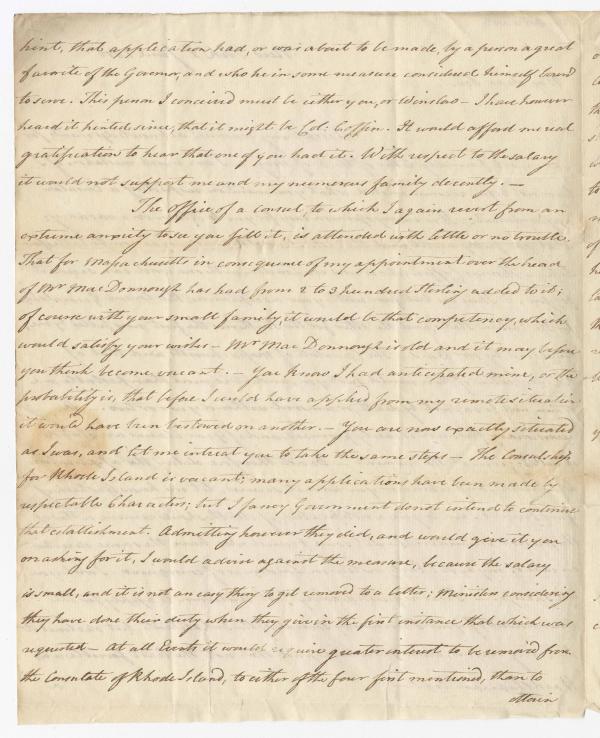 hint, that application had, or was about to be made, by a person a great
favorite of the Governor, and who he in some measure considered himself bound
to serve. This person I conceived must be either you, or Winslow – I have however
heard it hinted since, that it might be Col: Coffin. It would afford me real
gratification to hear that one of you had it. With respect to the salary
it would not support me and my numerous family decently. –
The office of a consul, to which I again revert from an
extreme anxiety to see you fill it, is attended with little or no trouble.
That for Massachusetts in consequence of my appointment over the head
of Mr Mac Donnough has had from 2 to 3 hundred Sterling added to it;
of course with your small family, it would be that competency, which
would satisfy your wishes – Mr Mac Donnough is old and it may before
you think become vacant. – You know I had anticipated mine, or the
probability is, that before I could have applied from my remote situation
it would have been bestowed on another. – You are now exactly situated
as I was, and let me intreat you to take the same steps – The Consulship
for Rhode Island is vacant; many applications have been made by
respectable Characters; but I fancy Government do not intend to continue
that establishment. Admitting however they did, and would give it you
on asking for it, I would advise against the measure, because the salary
is small, and it is not an easy thing to get removed to a better; Ministers considering
they have done their duty when they give in the first instance that which was
requested – At all Events it would require greater interest to be remov'd from
the Consulate of Rhode Island, to either of the four first mentioned, than to
attain